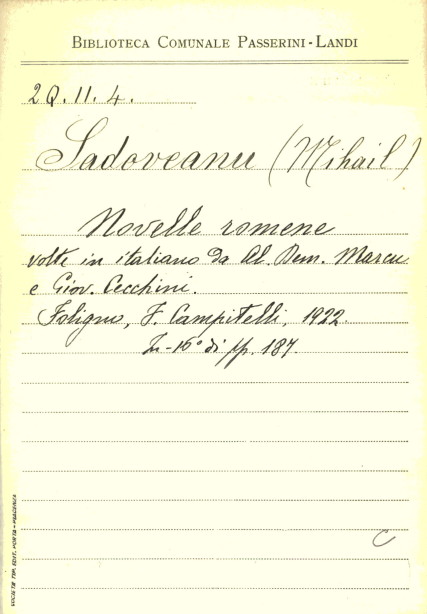 BIBLIOTECA COMUNALE PASSERINI-LANDI
2Q.11.4.
Sadoveanu (Mihail)
Novelle romene
volte in italiano da Al. Dem. Marcu
e Giov. Cecchini.
Foligno, F. Campitelli, 1922.
In-16° di pp. 187.
C